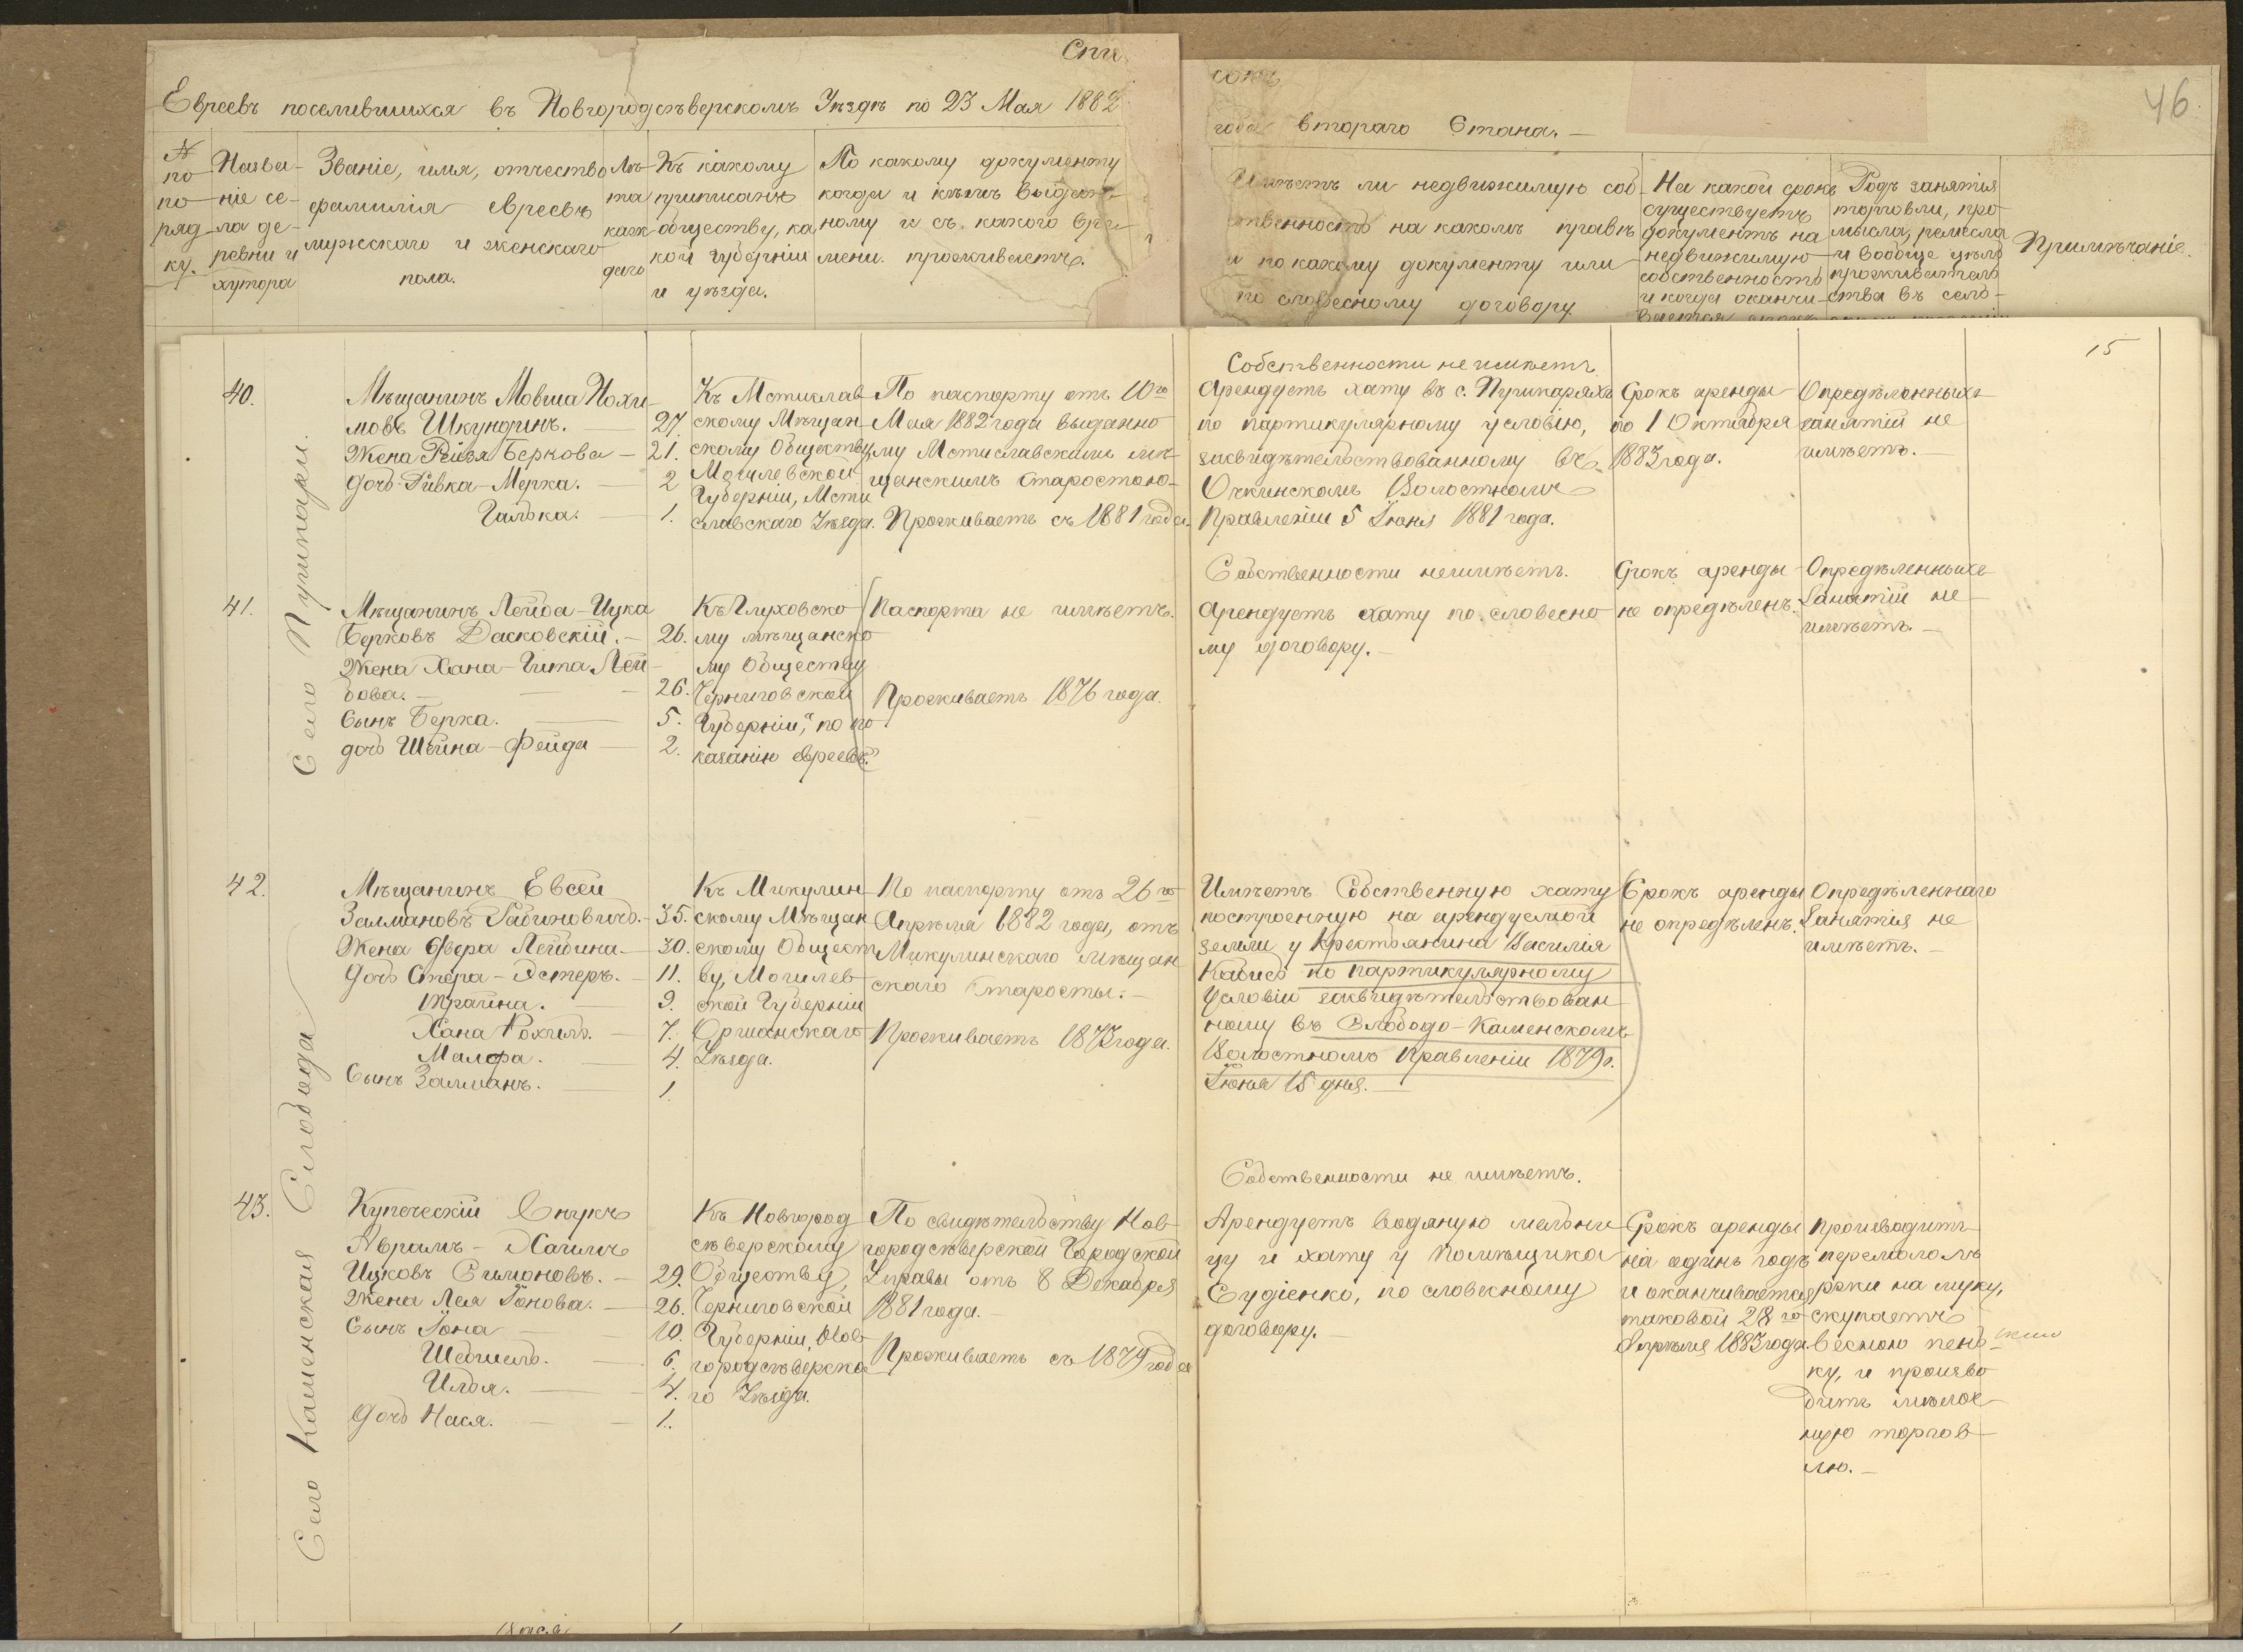 Спи
сокъ
46
Евреевъ поселившихся въ Новгородсѣверскомъ Уѣздѣ по 23 Мая 1882
года втораго Стана.
№
по
по-
ряд
ку.
Назва-
ніе се-
ла де-
ревни и
хутора
Званіе, имя, отчество
фамилія евреевъ
мужскаго и женскаго
пола.
Лѣ-
та
каж
даго
Къ какому
приписанъ
обществу, ка
кой губерніи
и уѣзда.
По какому документу
когда и кѣмъ выдан-
ному и съ какого вре-
мени проживаетъ.
Имѣетъ ли недвижимую соб-
ственность на какомъ правѣ
и по какому документу или
по словесному договору
На какой срокъ
существуетъ
документъ на
недвижимую
собственность
и когда оканчи-
вается срокъ
Родъ занятія
торговли, про
мысла, ремесла
и вообще цѣль
проживатель
ства въ село-
Примѣчаніе.
15
Село Пушкари.
40.
Мѣщанинъ Мовша Нохи-
мовъ Шкундинъ. — 27
Жена Рейзя Беркова — 21.
дочь Ривка-Мерка. — 2
Галька. — 1.
Къ Мстислав
скому Мѣщан
скому Обществу
Могилевской
Губерніи, Мсти
славскаго Уѣзда.
По паспорту отъ 10го
Мая 1882 года выданно
му Мстиславскимъ мѣ-
щанскимъ Старостою-
Проживаетъ съ 1881 года
Собственности не имѣетъ
Арендуетъ хату въ с. Пушкаряхъ
по партикулярному условію,
засвидѣтельствованному въ
Очкинскомъ Волостномъ
Правленіи 5 Іюня 1881 года.
Срокъ аренды
по 1 Октября
1883 года.
Опредѣленныхъ
занятій не
имѣетъ. —
41.
Мѣщанинъ Лейба-Ицка
Берковъ Дасковскій. — 26.
Жена Хана-Гита Лей-
бова. — 26.
Сынъ Берка. — 5.
дочь Шейна-Фейда — 2.
Къ Глуховско
му мѣщанско
му Обществу
Черниговской
Губерніи, по по
казанію евреевъ.
Паспорта не имѣетъ.
Проживаетъ 1876 года.
Собственности неимѣетъ.
Арендуетъ хату по словесно
му договору. —
Срокъ аренды
не опредѣленъ.
Опредѣленныхъ
Занятій не
имѣетъ. —
Село Каменская Слобода
42.
Мѣщанинъ Евсей
Залмановъ Рабиновичъ. — 35.
Жена Двера Лейбина — 30.
дочь Стера-Эстеръ. — 11.
Трайна. 9.
Хана Рохиль. — 7.
Малфа. — 4.
Сынъ Залманъ. — 1.
Къ Микулин
скому Мѣщан
скому Общест
ву, Могилев
ской Губерніи
Оршанскаго
Уѣзда.
По паспорту отъ 26го
Апрѣля 1882 года, отъ
Микулинскаго мѣщан
скаго Старосты. —
Проживаетъ 1873 года.
Имѣетъ Собственную хату
построенную на арендуемой
земли у крестьянина Василія
Кабися по партикулярному
Условію засвидѣтельствован
ному въ Слободо-Каменскомъ
Волостномъ Правленіи 1879 г.
Іюня 15 дня. —
Срокъ аренды
не опредѣленъ.
Опредѣленнаго
Занятія не
имѣетъ. —
43.
Купеческій Внукъ
Абрамъ-Хаимъ
Ицковъ Симоновъ. — 29.
Жена Лея Іонова. — 26.
Сынъ Іона — 10.
Шевшель. — 6.
Илья. — 4.
дочь Нася. — 1.
Къ Новгород
сѣверскому
Обществу,
Черниговской
Губерніи, Нов
городсѣверска
го Уѣзда.
По свидѣтельству Нов
городсѣверской Городской
Управы отъ 8 Декабря
1881 года. —
Проживаетъ съ 1879 года
Собственности не имѣетъ.
Арендуетъ водяную мельни
цу и хату у Помѣщика
Судіенко, по словесному
договору. —
Срокъ аренды
на одинъ годъ
и оканчивается
таковой 28го
Апрѣля 1883 года.
Производитъ
перемоломъ
ржи на муку,
скупаетъ
весною пень-
ку, и произво
дитъ мелоч-
ную торгов-
лю. —